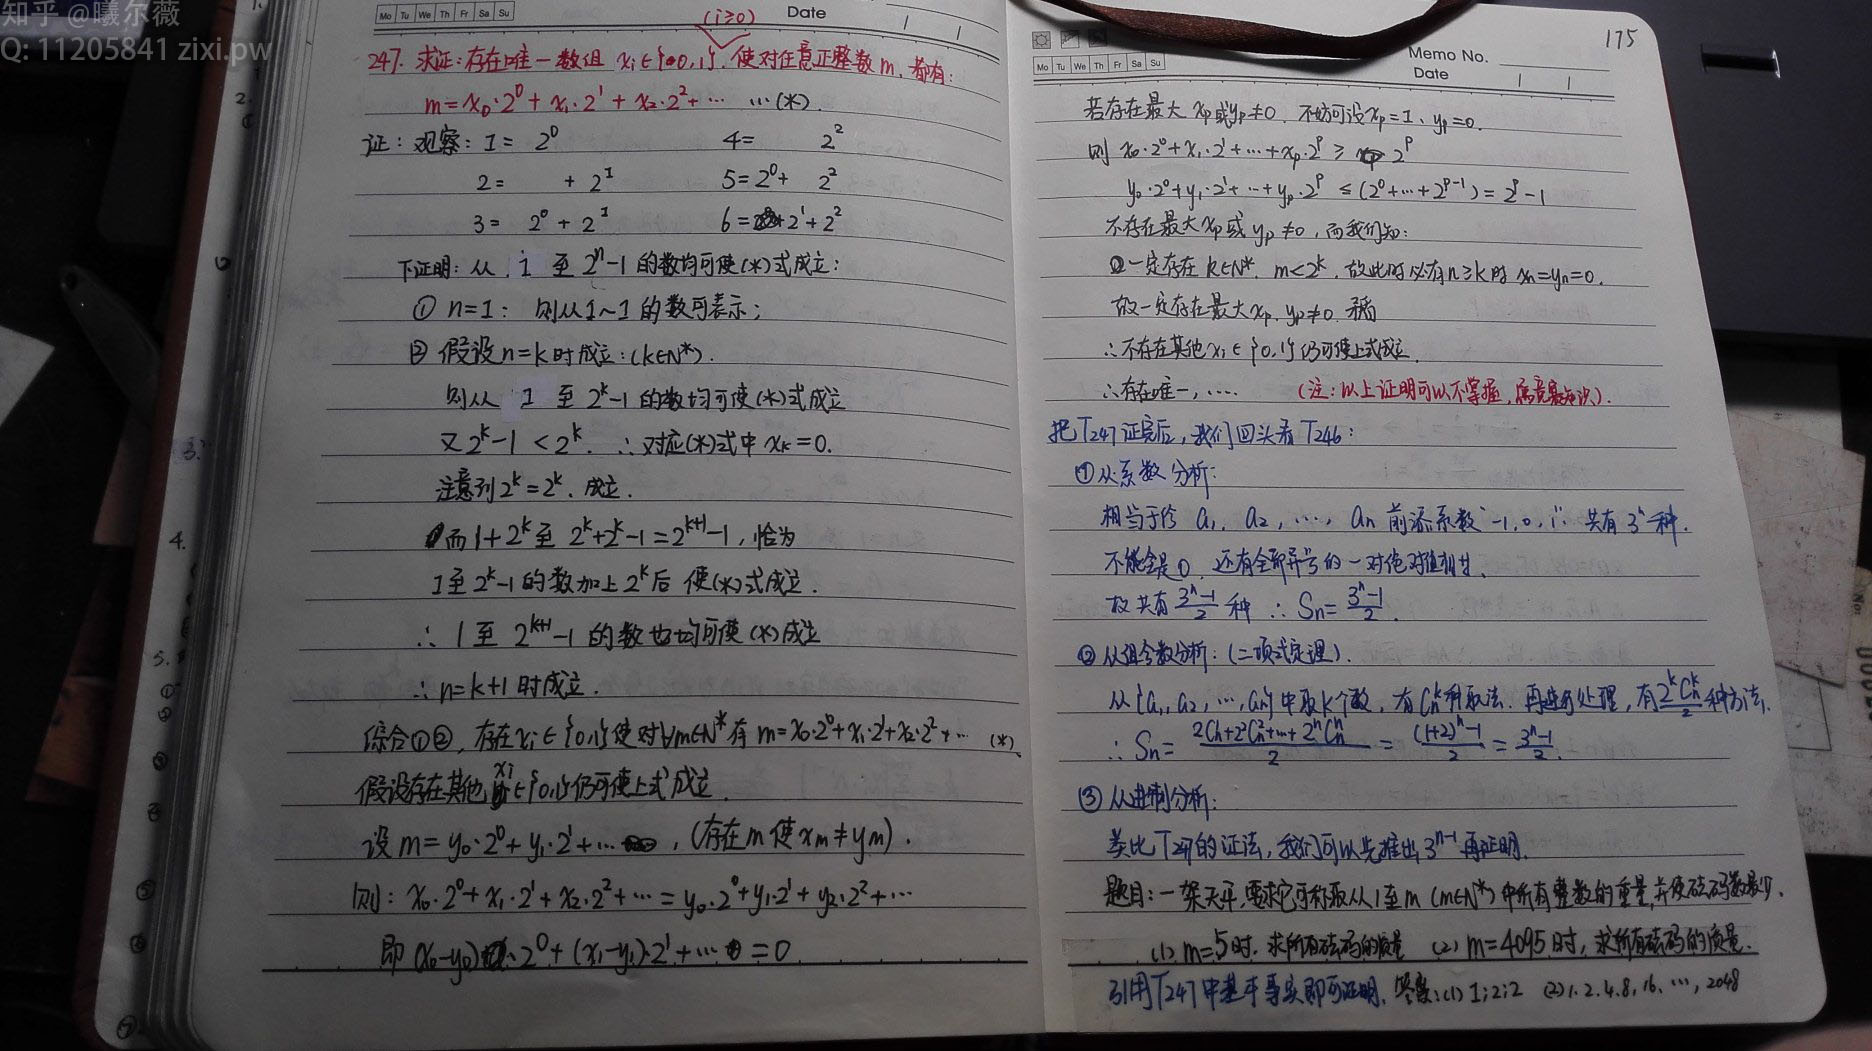 知乎 @曦尔薇
Q: 11205841 zixi.pw
Mo Tu We Th Fr Sa Su
Date
(i≥0)
247. 求证:存在唯一数组 xi∈{0,1}, 使对任意正整数m, 都有:
m=x0·2^0+x1·2^1+x2·2^2+… …(*).
证: 观察: 1= 2^0 4= 2^2
2= +2^1 5=2^0+ 2^2
3= 2^0+2^1 6= 2^1+2^2
下证明: 从 1 至 2^n-1 的数均可使(*)式成立:
① n=1: 则从1~1的数可表示;
② 假设n=k时成立:(k∈N*).
则从 1 至 2^k-1 的数均可使(*)式成立
又 2^k-1<2^k. ∴对应(*)式中 xk=0.
注意到 2^k=2^k, 成立.
而 1+2^k 至 2^k+2^k-1=2^(k+1)-1, 恰为
1至2^k-1的数加上2^k后 使(*)式成立.
∴ 1至 2^(k+1)-1 的数也均可使(*)成立
∴ n=k+1时成立.
综合①②, 存在xi∈{0,1}使对∀m∈N*有 m=x0·2^0+x1·2^1+x2·2^2+… (*)
假设存在其他 xi∈{0,1}仍可使上式成立.
设 m=y0·2^0+y1·2^1+… , (存在m使xm≠ym).
则: x0·2^0+x1·2^1+x2·2^2+…=y0·2^0+y1·2^1+y2·2^2+…
即 (x0-y0)·2^0+(x1-y1)·2^1+… =0
175
Memo No.
Mo Tu We Th Fr Sa Su
Date
若存在最大 xp或yp≠0, 不妨可设xp=1, yp=0.
则 x0·2^0+x1·2^1+…+xp·2^p ≥ 2^p
y0·2^0+y1·2^1+…+yp·2^p ≤(2^0+…+2^(p-1))=2^p-1
不存在最大xp或yp≠0, 而我们知:
一定存在k∈N*, m<2^k, 故此时必有n≥k时 xn=yn=0.
故一定存在最大xp, yp≠0. 矛盾
∴不存在其他xi∈{0,1}仍可使上式成立.
∴存在唯一,…… (注:以上证明可以不掌握,属竞赛知识).
把T247证完后, 我们回头看T246:
①从系数分析:
相当于给 a1, a2, …, an 前添系数 -1,0,1, 共有3^n种.
不能全是0, 还有全部异号的一对绝对值相等.
故共有 (3^n-1)/2 种 ∴ Sn=(3^n-1)/2.
②从组合数分析:(二项式定理).
从{a1,a2,…,an}中取k个数, 有Cn^k种取法. 再进行处理, 有 2^kCn^k/2 种方法.
∴ Sn= (2Cn^1+2^2Cn^2+…+2^nCn^n)/2 = ((1+2)^n-1)/2 = (3^n-1)/2.
③从进制分析:
类比T247的证法, 我们可以先推出3^(n-1)再证明.
题目:一架天平,要求它可称取从1至m(m∈N*)中所有整数的重量,并使砝码数最少.
(1) m=5时, 求所有砝码的质量 (2) m=4095时, 求所有砝码的质量.
引用T247中基本事实即可证明. 答案:(1) 1;2;2 (2) 1,2,4,8,16,…,2048